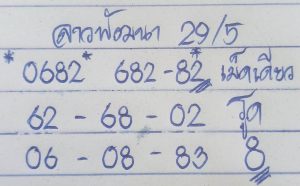 ลาวพัฒนา 29/5
*0682* 682-82* เม็ดเดียว
62 - 68 - 02 รูด
06 - 08 - 83 8